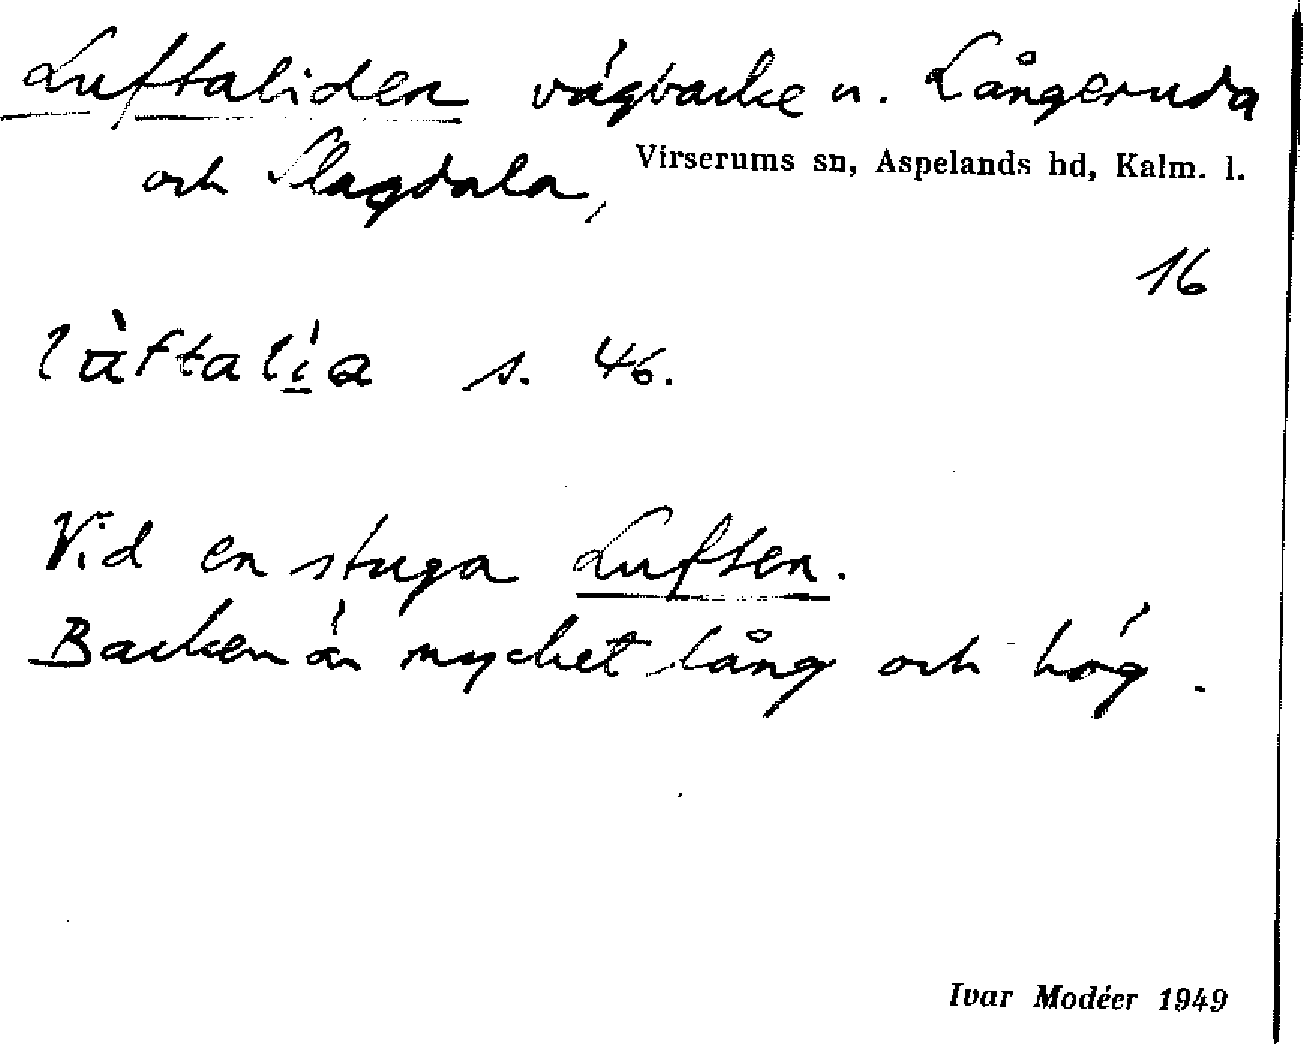 Luftaliden vägbacke n. Långeruda
och Slagdala, Virserums sn, Aspelands hd, Kalm. l.
16
lùftalía s. 46.
Vid en stuga Luften.
Backen är mycket lång och hög.
Ivar Modéer 1949